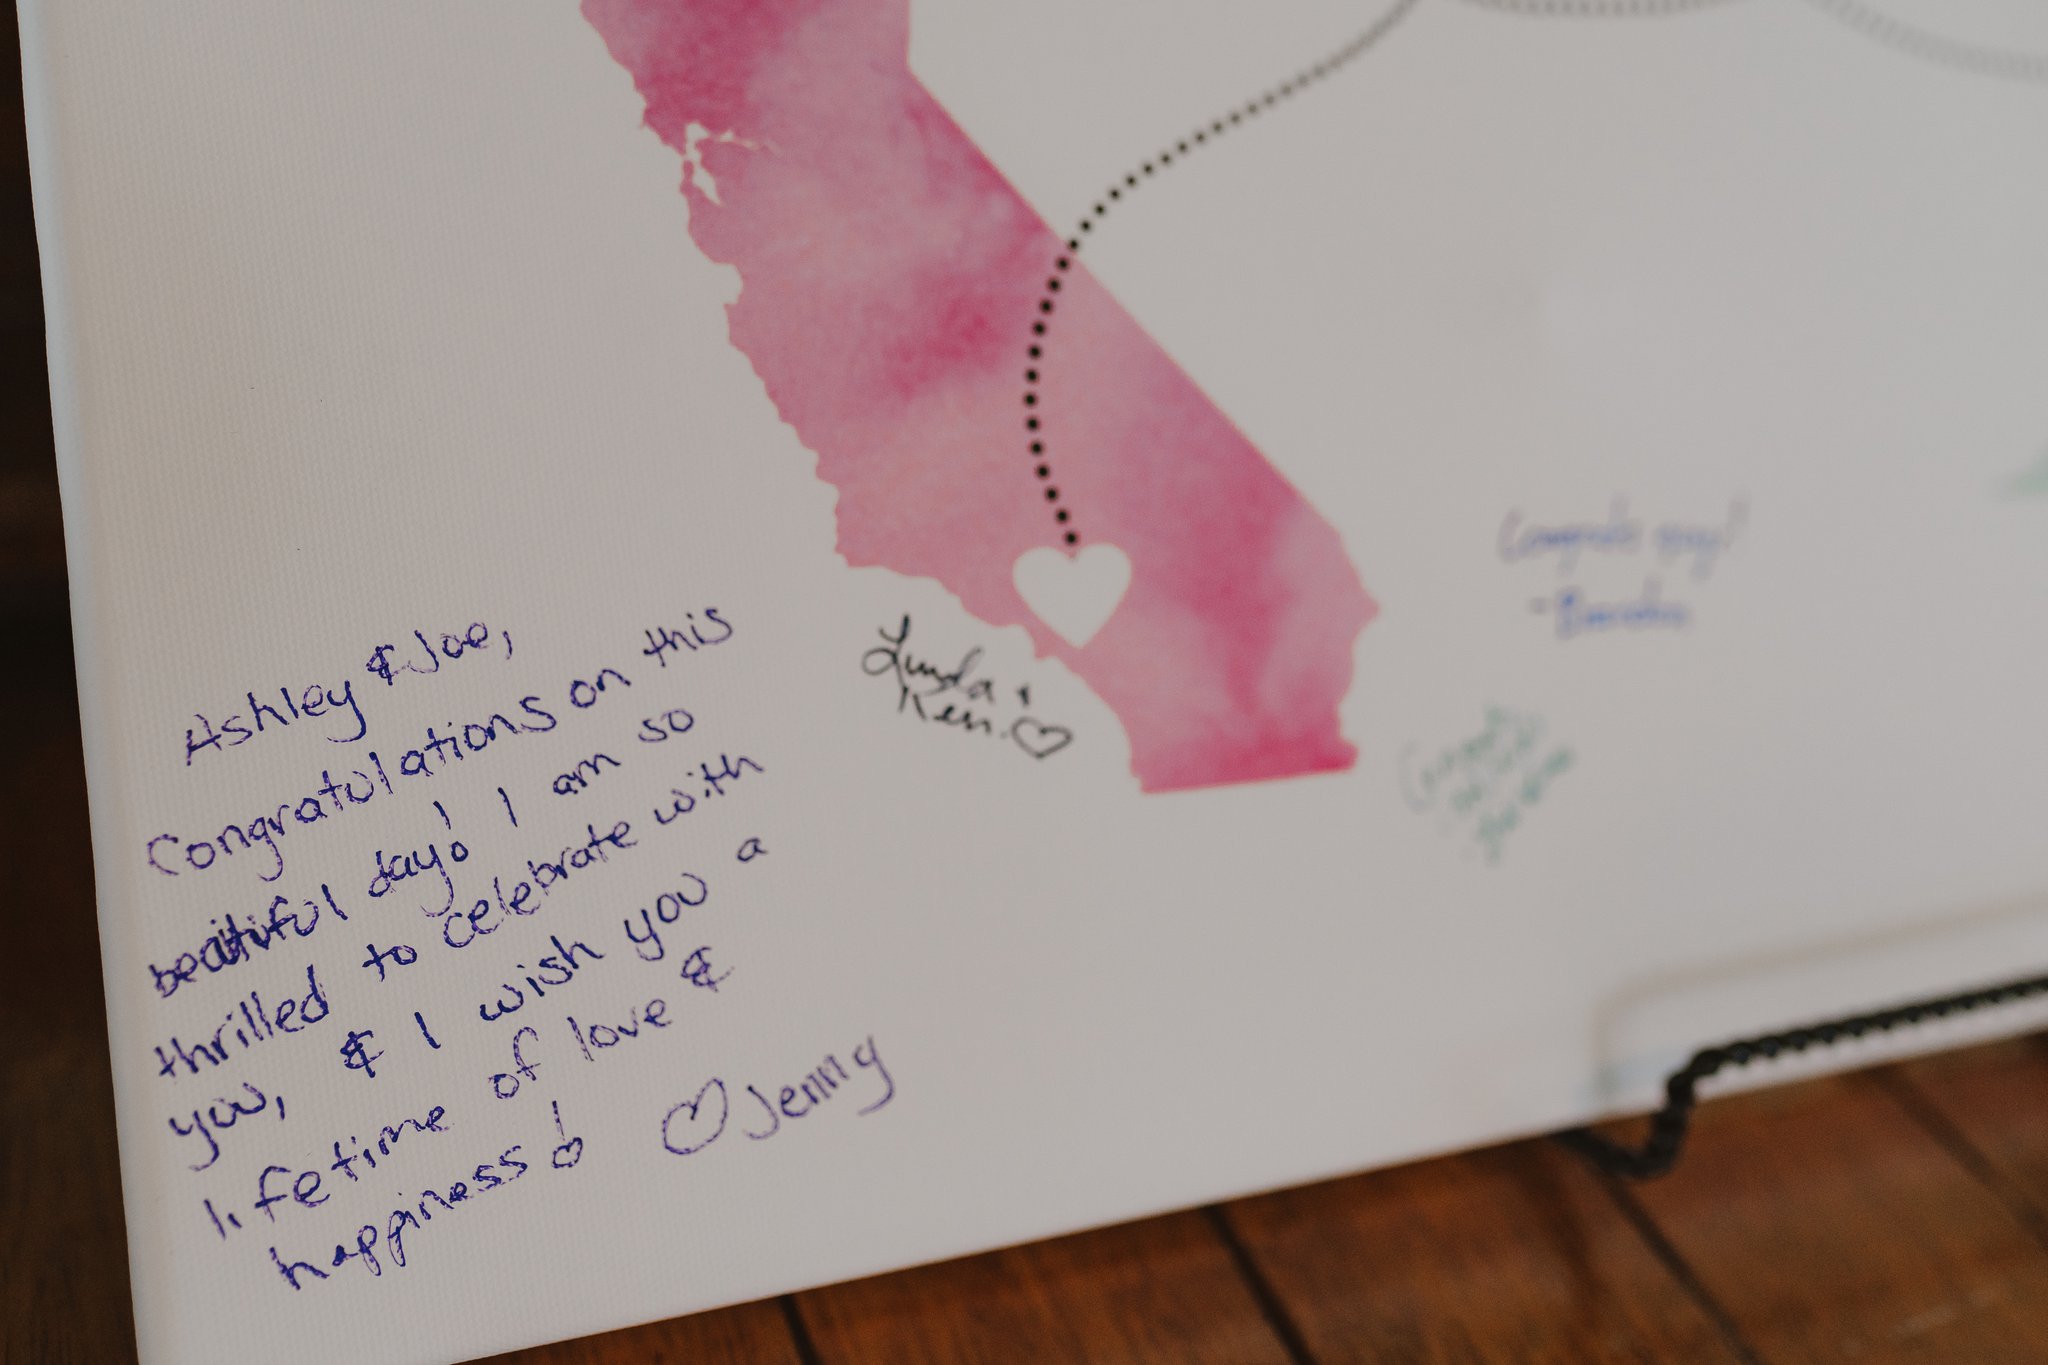 Ashley & Joe,
Congratulations on this
beautiful day! I am so
thrilled to celebrate with
you, & I wish you a
lifetime of love &
happiness! ♡ Jenny
Linda +
Ken ♡
Congrats guys!